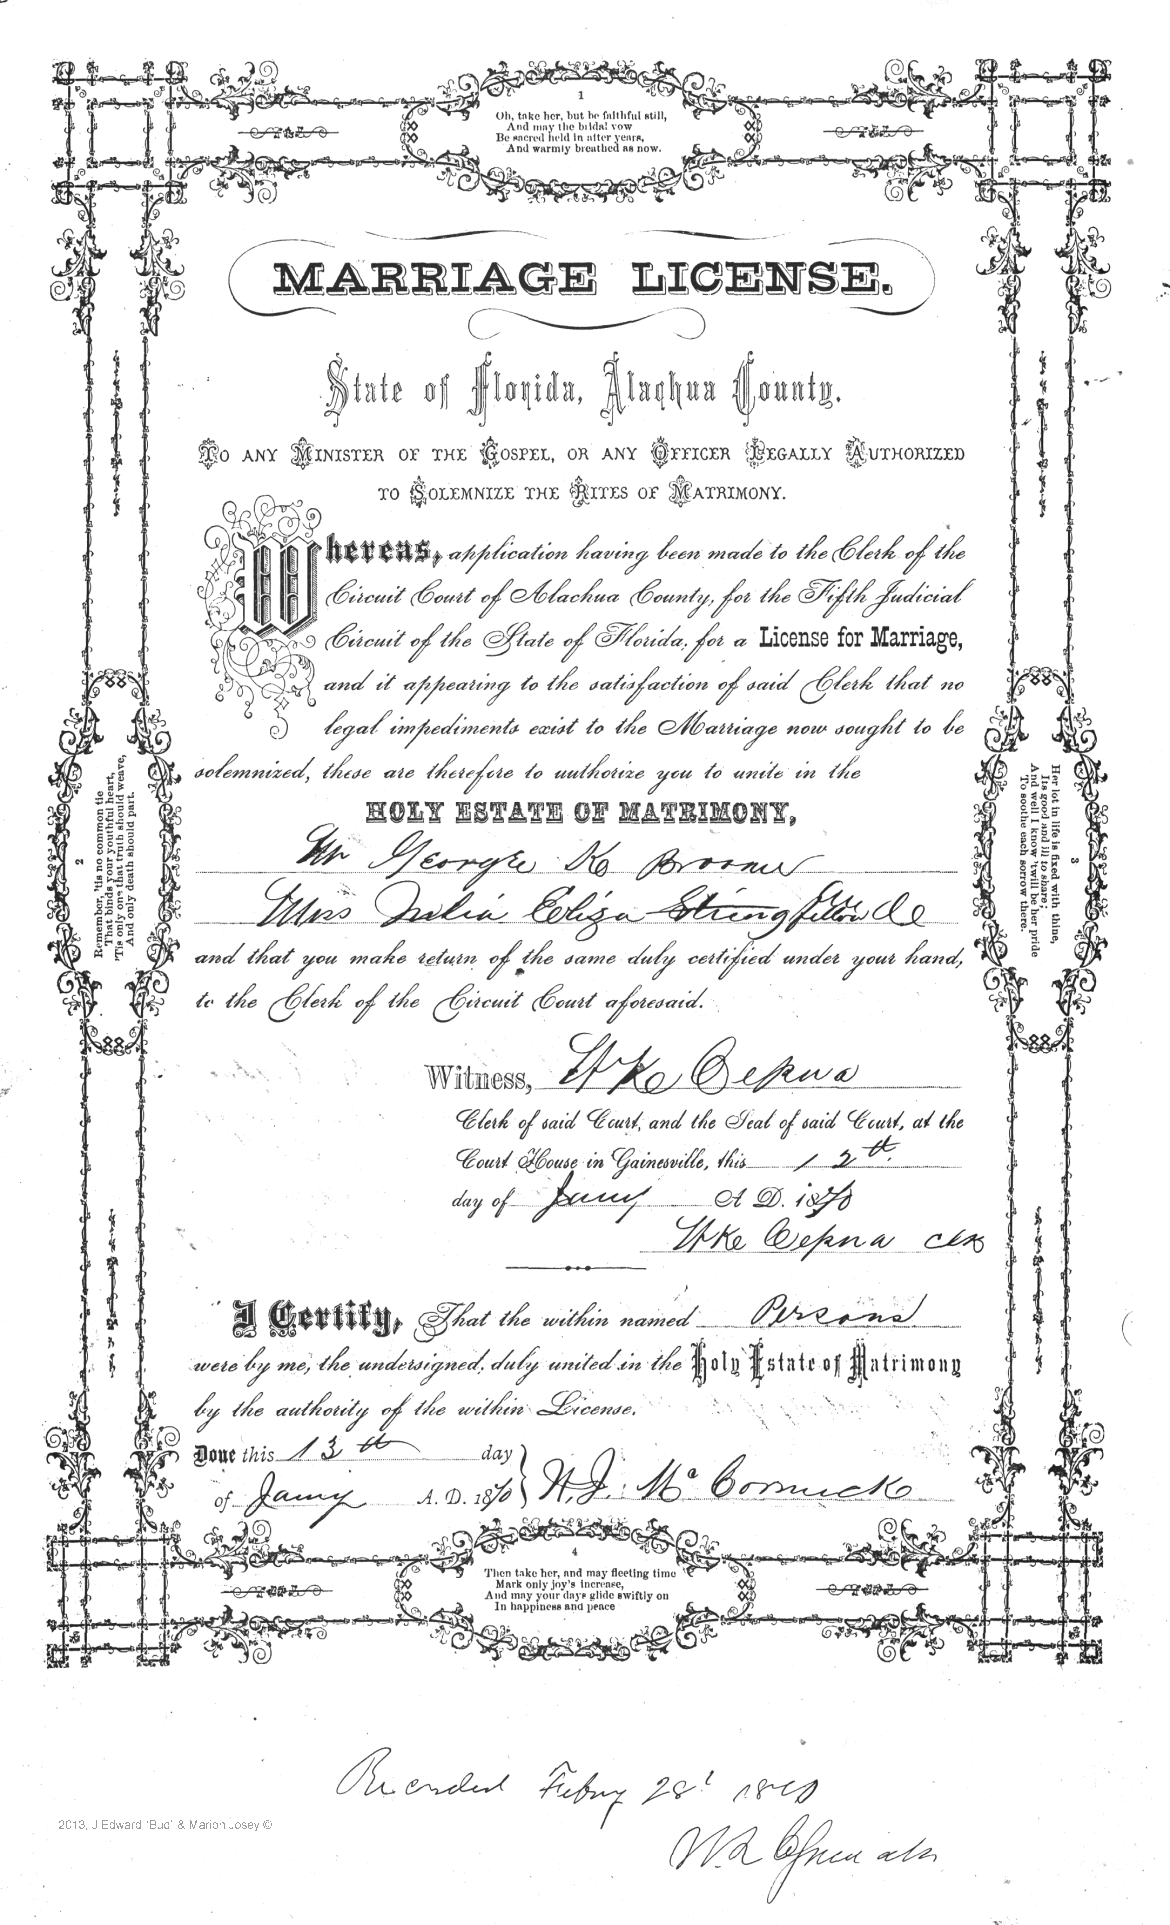 1
Oh, take her, but be faithful still,
And may the bridal vow
Be sacred held in after years,
And warmly breathed as now.
MARRIAGE LICENSE.
State of Florida, Alachua County.
TO ANY MINISTER OF THE GOSPEL, OR ANY OFFICER LEGALLY AUTHORIZED
TO SOLEMNIZE THE RITES OF MATRIMONY.
Whereas, application having been made to the Clerk of the
Circuit Court of Alachua County, for the Fifth Judicial
Circuit of the State of Florida, for a License for Marriage,
and it appearing to the satisfaction of said Clerk that no
legal impediments exist to the Marriage now sought to be
solemnized, these are therefore to authorize you to unite in the
HOLY ESTATE OF MATRIMONY,
Mr George K Broome
Miss Julia Eliza Stringfellow
and that you make return of the same duly certified under your hand,
to the Clerk of the Circuit Court aforesaid.
Witness,
Clerk of said Court, and the Seal of said Court, at the
Court House in Gainesville, this 12th
day of Jany A D. 1870
Clk
I Certify, That the within named Persons
were by me, the undersigned, duly united in the Holy Estate of Matrimony
by the authority of the within License.
Done this 13th day
of Jany A. D. 1870 } H. J. McCormick
2
Remember, 'tis no common tie
That binds your youthful heart,
'Tis only one that truth should weave,
And only death should part.
3
Her lot in life is fixed with thine,
Its good and ill to share;
And well I know 'twill be her pride
To soothe each sorrow there.
4
Then take her, and may fleeting time
Mark only joy's increase,
And may your days glide swiftly on
In happiness and peace
Recorded Febry 28 1870
2013, J Edward 'Bud' & Marion Josey ©